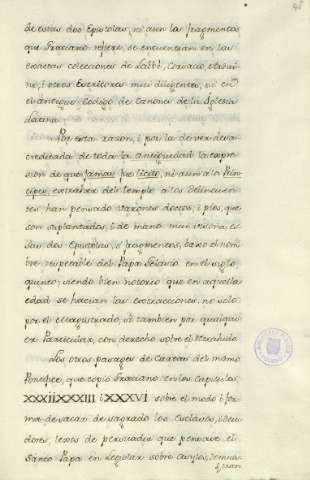 de estas dos Epistolas, ni aun los fragmentos
que Graciano refiere, se encuentran en las
exactas colecciones de Labbé,
no, i otros Escritores mui diligentes, ni en
el antiguo Codigo de Canones de la Iglesia
Latina.
Por esta razon, i por la de ver desa-
creditada de toda la antiguedad la expre-
sion de que jamas fue licito, ni aun a los Prin-
cipes, extraher del templo a los delinquen-
tes han pensado varones doctos, i pios, que
son suplantadas, i de mano mui visoña, es-
tas dos Epistolas, i fragmentos, baxo el nom-
bre respetable del Papa Gelasio en el siglo
quinto, siendo bien notorio que en aquella
edad se hacian las extracciones, no solo
por el Magistrado, si tambien por qualquie-
ra Particular, con derecho sobre el Reclamado
Los otros pasages de Cartas del mismo
Pontifice, que copió Graciano en los capitulos
XXXII XXXIII i XXXVI sobre el modo i for-
ma de sacar de sagrado los Esclavos, i deu-
dores, lexos de persuadir que pensase el
Santo Papa en legislar sobre Asylos, demues-
tran